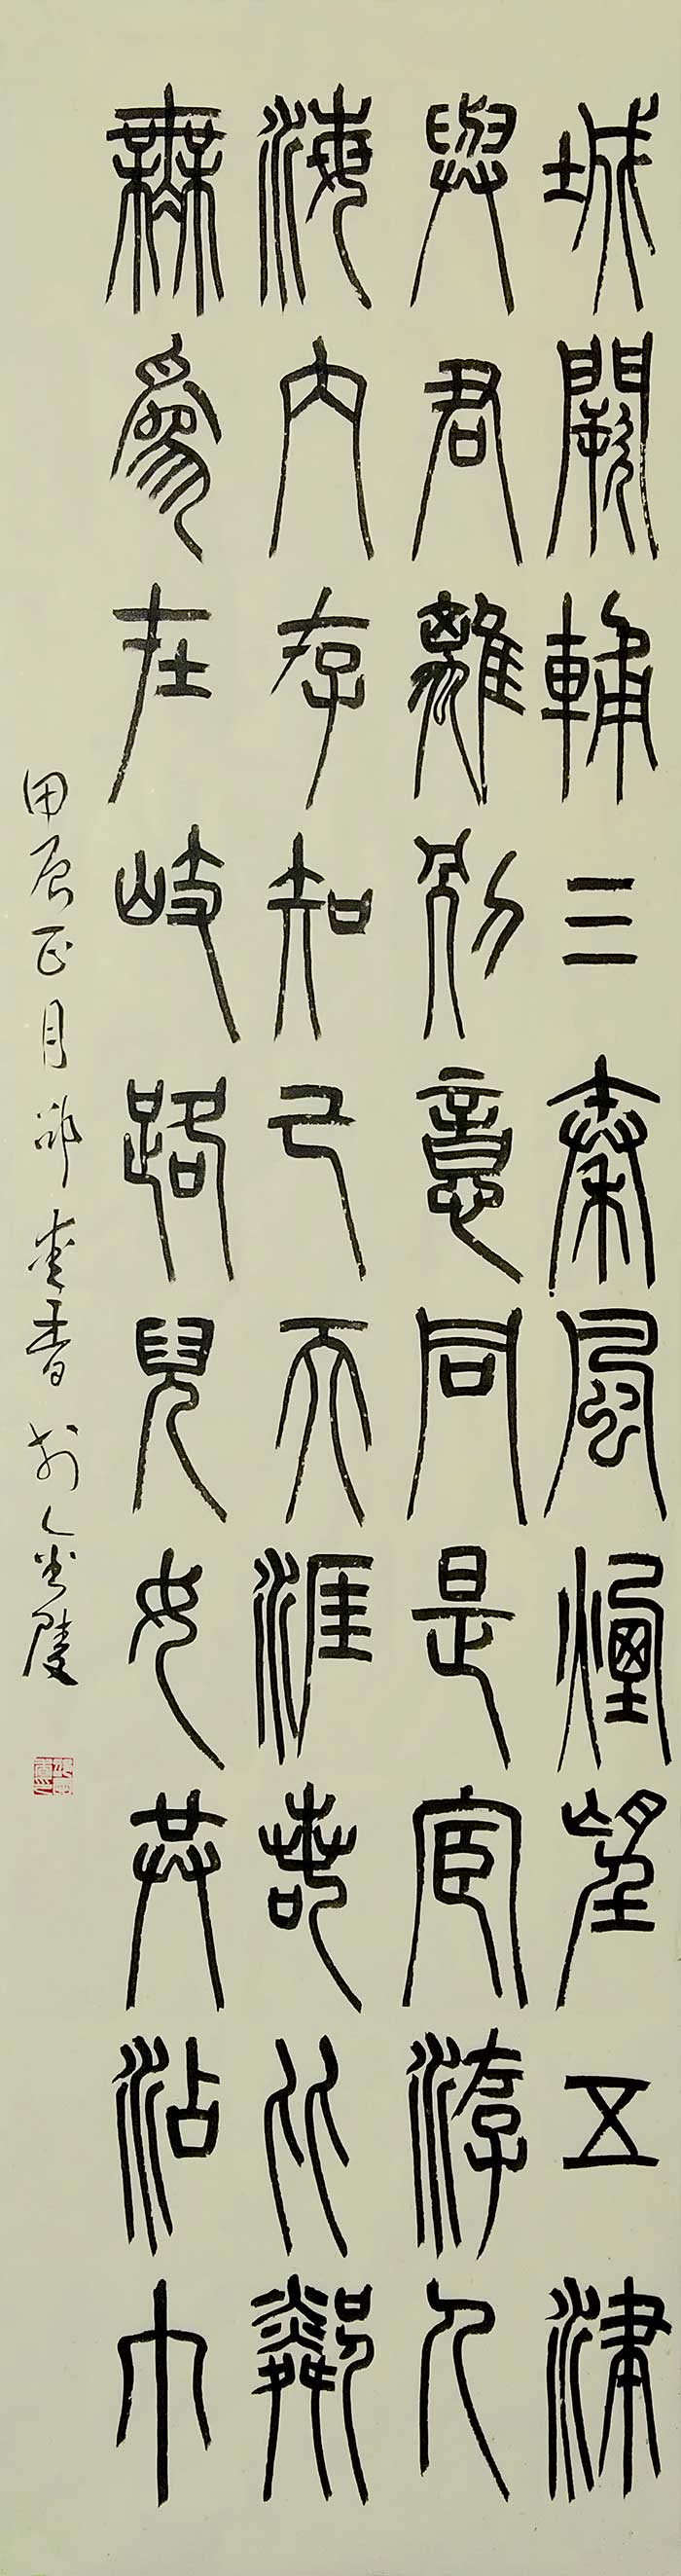 城闕輔三秦風煙望五津
與君離別意同是宦游人
海內存知己天涯若比鄰
無為在歧路兒女共沾巾
甲辰正月邵香於金陵